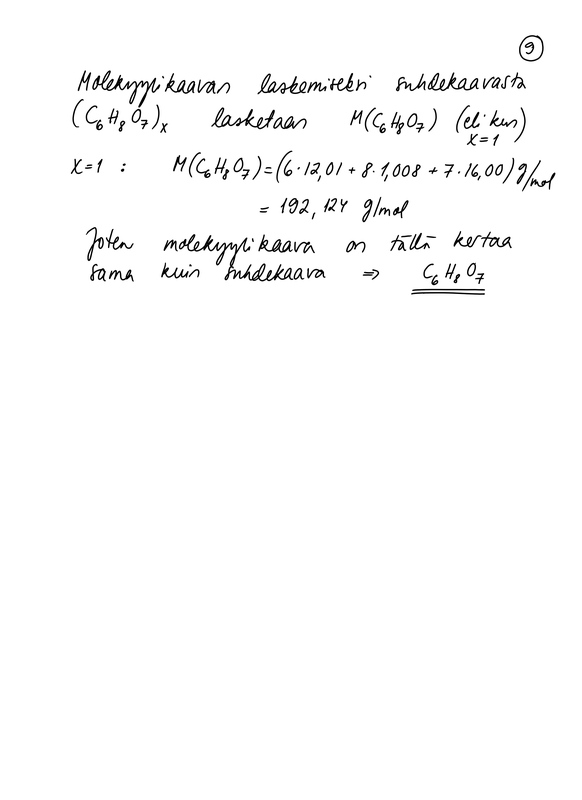 9
Molekyylikaavan laskemiseksi suhdekaavasta
(C₆H₈O₇)ₓ lasketaan M(C₆H₈O₇) (eli kun x=1)
x=1 : M(C₆H₈O₇)=(6·12,01 + 8·1,008 + 7·16,00) g/mol
= 192,124 g/mol
Joten molekyylikaava on tällä kertaa
sama kuin suhdekaava ⇒ C₆H₈O₇